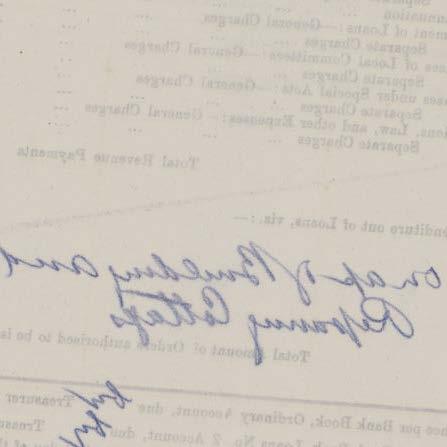 nnuation ... ... ...
ment of Loans:—General Charges
Separate Charges ... ...
ses of Local Committees:—General Charges
Separate Charges ... ...
ses under Special Acts:—General Charges
Separate Charges ... ...
ions, Law, and other Expenses:—General Charges ...
Separate Charges ... ... ...
Total Revenue Payments
enditure out of Loans, viz.:—
of Building and
Repairing Cottages
Total Amount of Orders authorised to be is
nce per Bank Book, Ordinary Account, due Treasurer
No. 2 Account, due Treasu